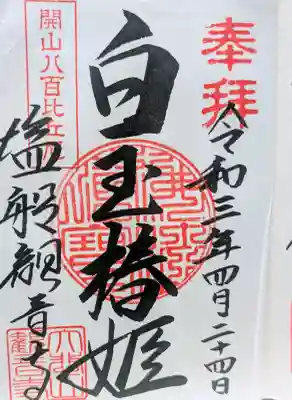 奉拝
令和三年四月二十四日
白玉椿姫
開山八百比丘尼
塩船観音寺